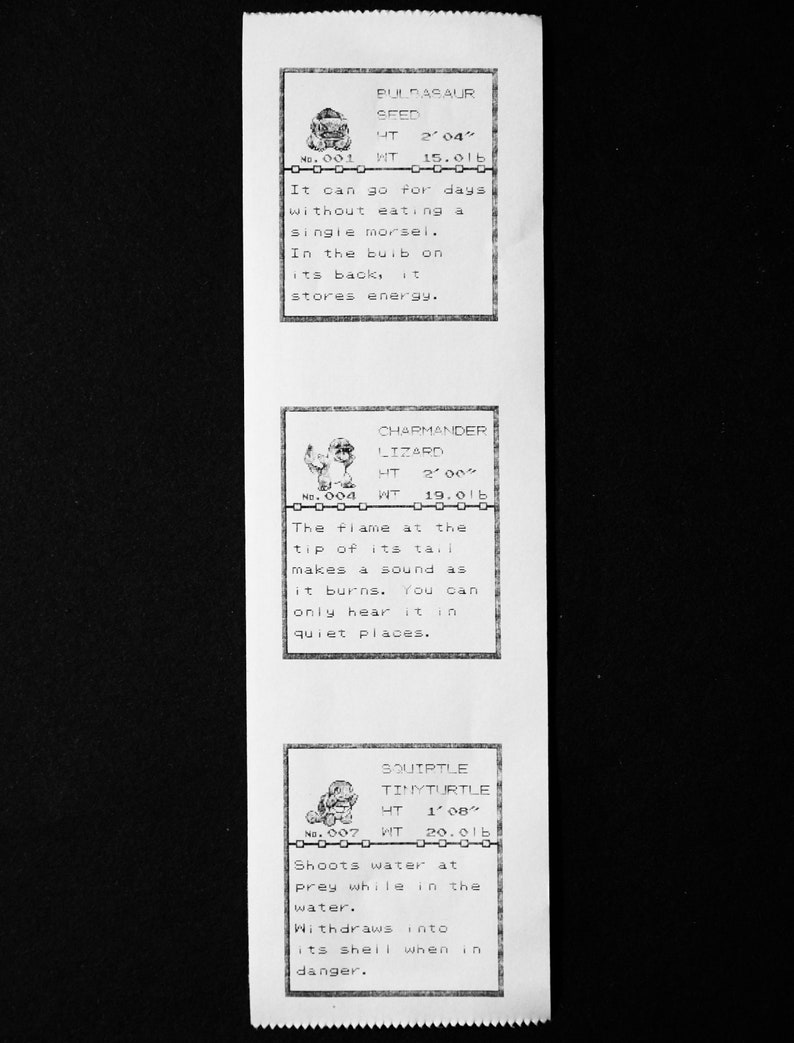 BULBASAUR
SEED
HT 2'04"
No.001 WT 15.0lb
It can go for days
without eating a
single morsel.
In the bulb on
its back, it
stores energy.
CHARMANDER
LIZARD
HT 2'00"
No.004 WT 19.0lb
The flame at the
tip of its tail
makes a sound as
it burns. You can
only hear it in
quiet places.
SQUIRTLE
TINYTURTLE
HT 1'08"
No.007 WT 20.0lb
Shoots water at
prey while in the
water.
Withdraws into
its shell when in
danger.